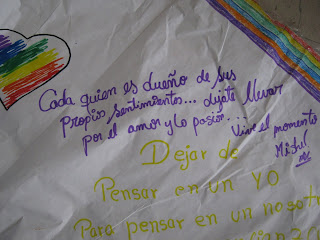 Cada quien es dueño de sus
propios sentimientos... dejate llevar
por el amor y la pasión...
Vive el momento
Dejar de
Pensar en un YO
Para pensar en un nosotr